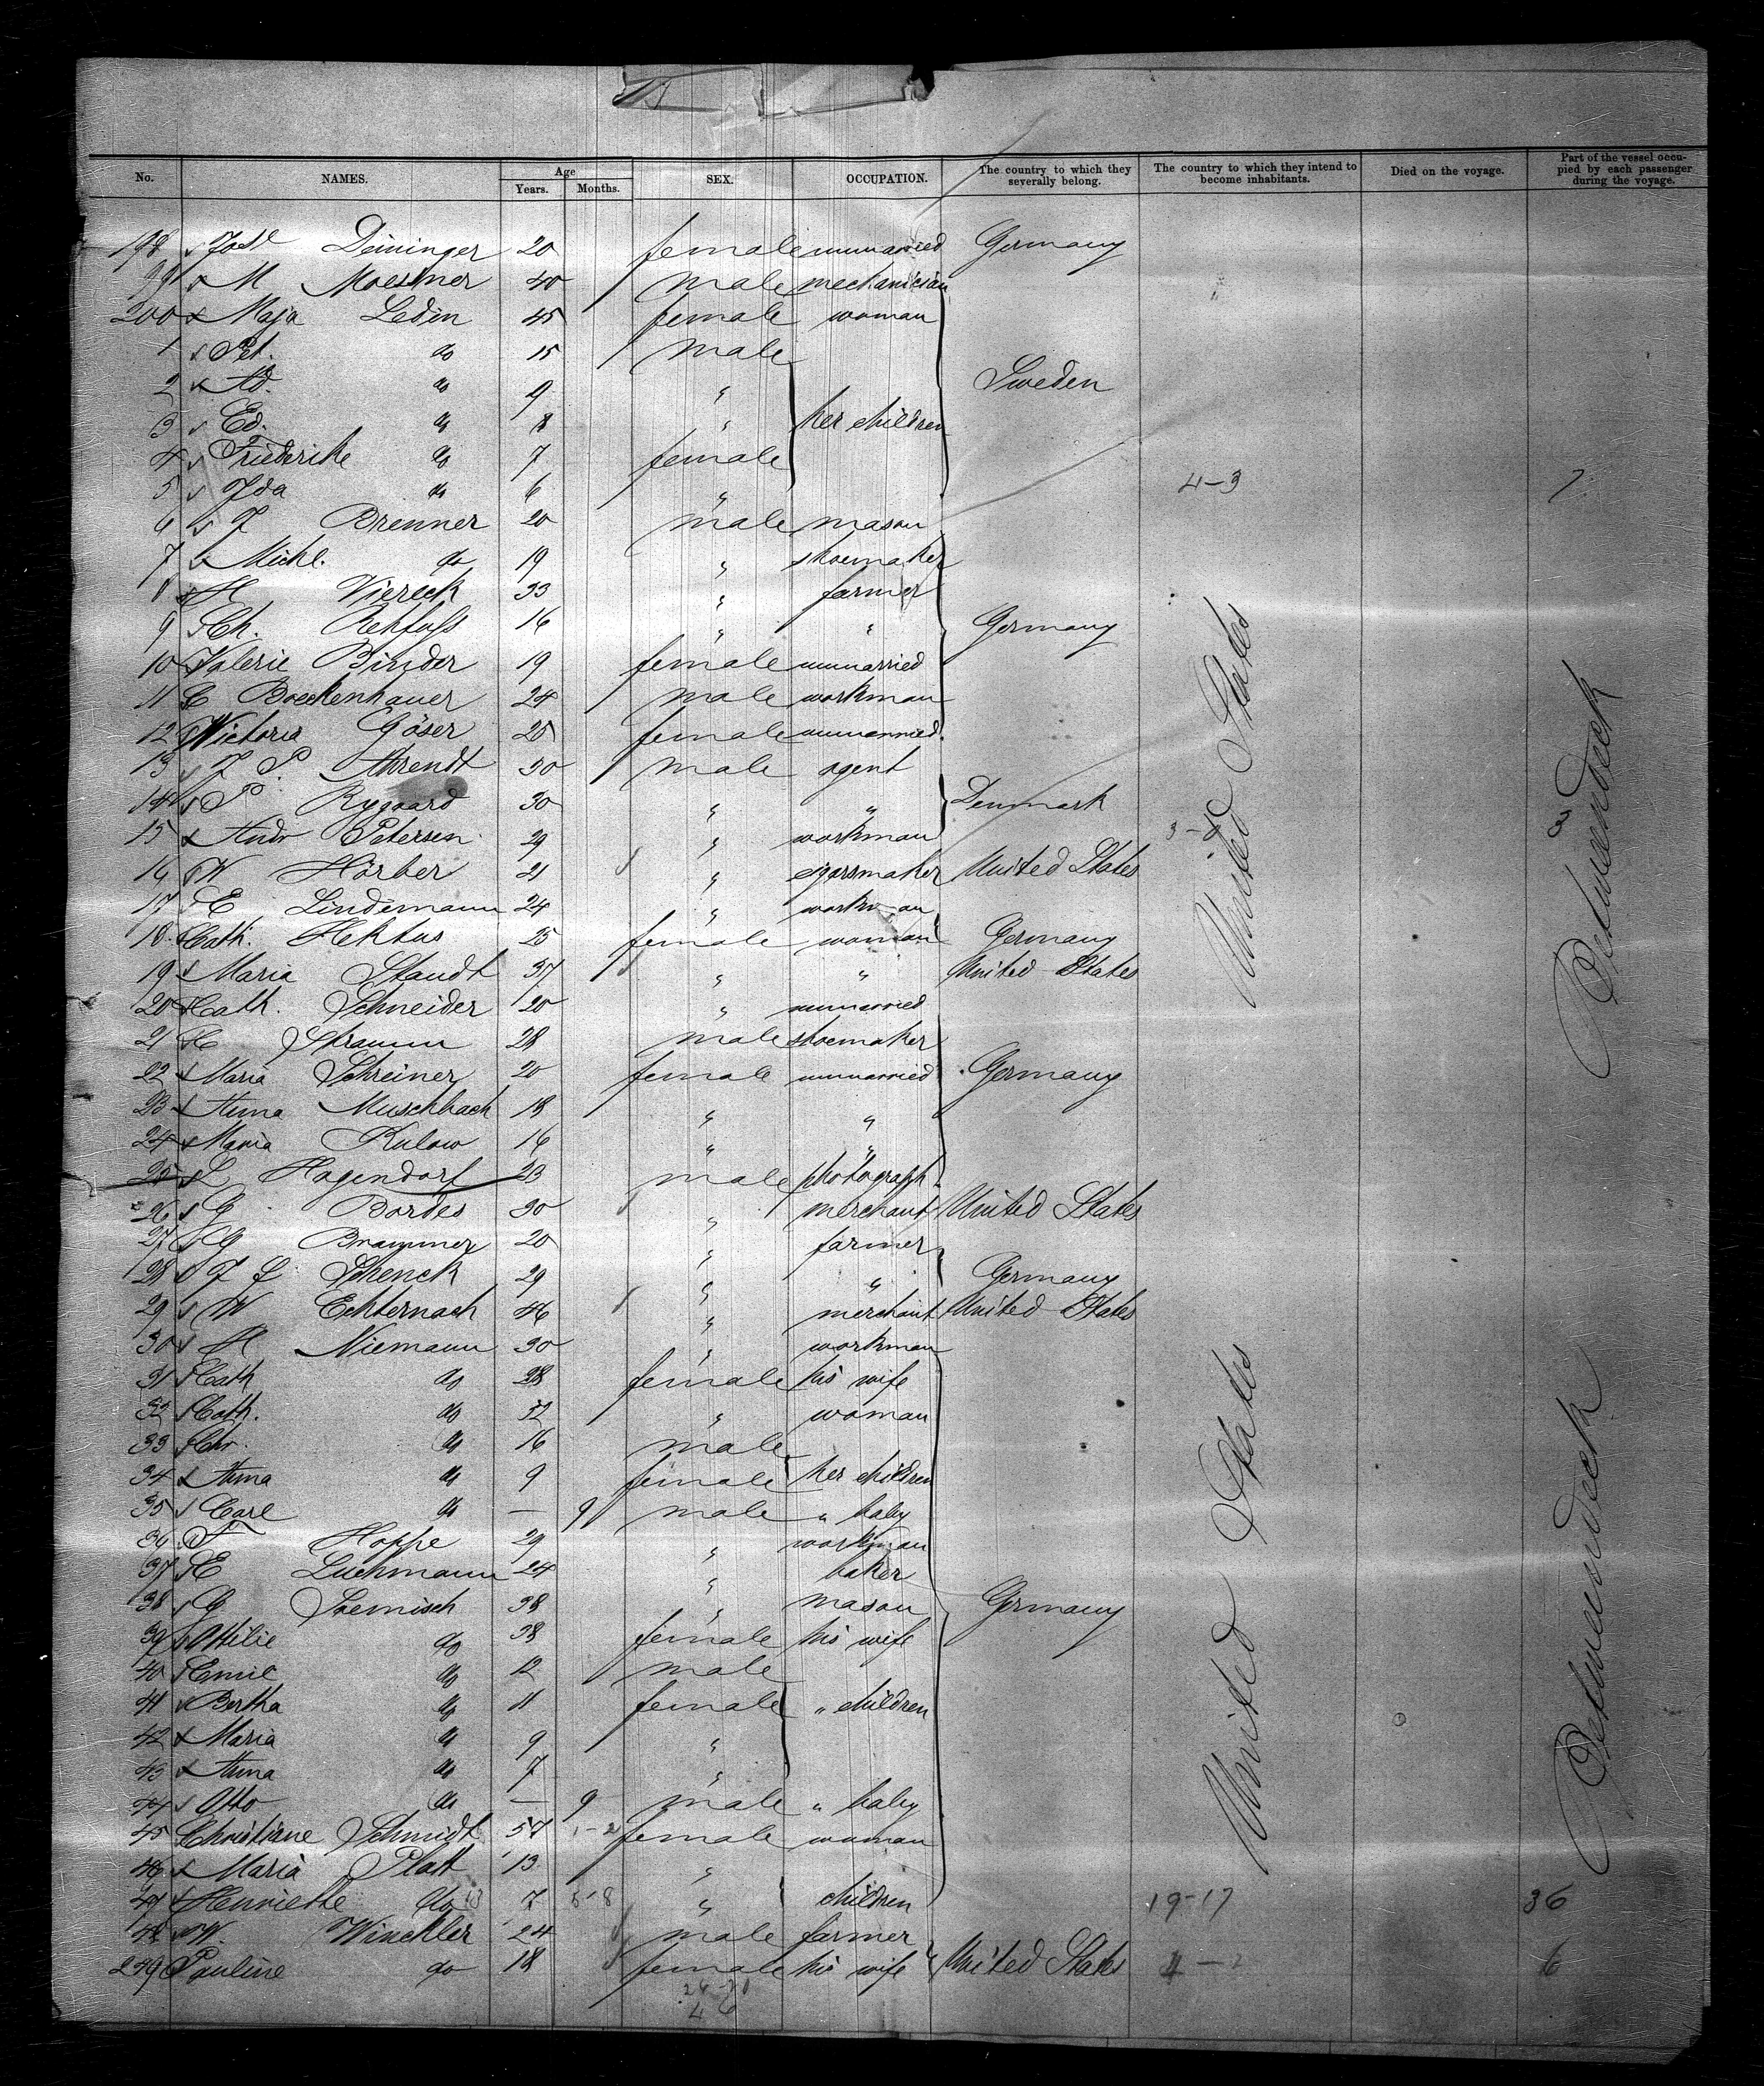 No. NAMES. Age Years. Months. SEX. OCCUPATION. The country to which they severally belong. The country to which they intend to become inhabitants. Died on the voyage. Part of the vessel occupied by each passenger during the voyage.
198 Deininger 20 female unmarried Germany
99 M Moestner 40 male mechanician
200 Maja Ledin 45 female woman
1 Pet. do 15 male
2 Ad. do 9 " Sweden
3 Ed. do 8 " her children
4 Friederike do 7 female
5 Ida do 6 " 4-3 7
6 J Brenner 20 male mason
7 Michl. do 19 " shoemaker
8 H Viereck 33 " farmer
9 Ch. Rehfuss 16 " " Germany
10 Valerie Binder 19 female unmarried
11 C Boeckenhauer 24 male workman
12 Victoria Göser 25 female unmarried
13 J P Ahrendt 30 male agent
14 P Rygaard 30 " " Denmark
15 Andr Petersen 29 " workman 3-0 3
16 W Hörber 21 " cigarsmaker United States
17 E Lindemann 24 " workman
18 Cath. Hektus 25 female woman Germany
19 Maria Staudt 37 " " United States
20 Cath. Schneider 20 " unmarried
21 C Stramm 28 male shoemaker
22 Maria Schreiner 20 female unmarried Germany
23 Anna Muschbach 18 " "
24 Maria Kulow 16 " "
25 L Hagendorf 23 male photograph
26 G Bordes 30 " merchant United States
27 G Brammer 20 " farmer
28 J L Schenck 29 " " Germany
29 W Echternach 46 " merchant United States
30 H Niemann 30 " workman
31 Cath do 28 female his wife
32 Cath. do 52 " woman
33 Chr. do 16 male
34 Anna do 9 female her children
35 Carl do — 9 male " baby
36 F Hoppe 29 " workman
37 E Luchmann 24 " baker
38 G Soemisch 38 " mason Germany
39 Ottilie do 38 female his wife
40 Emil do 12 male
41 Bertha do 11 female " children
42 Maria do 9 "
43 Anna do 7 "
44 Otto do — 9 male " baby
45 Christiane Schmidt 57 female woman
46 Maria Platt 13 "
47 Henriette do 7 5-8 " children 19-17 36
48 W. Winckler 24 male farmer
249 Pauline do 18 female his wife United States 6
United States
United States
Betweendeck
Betweendeck